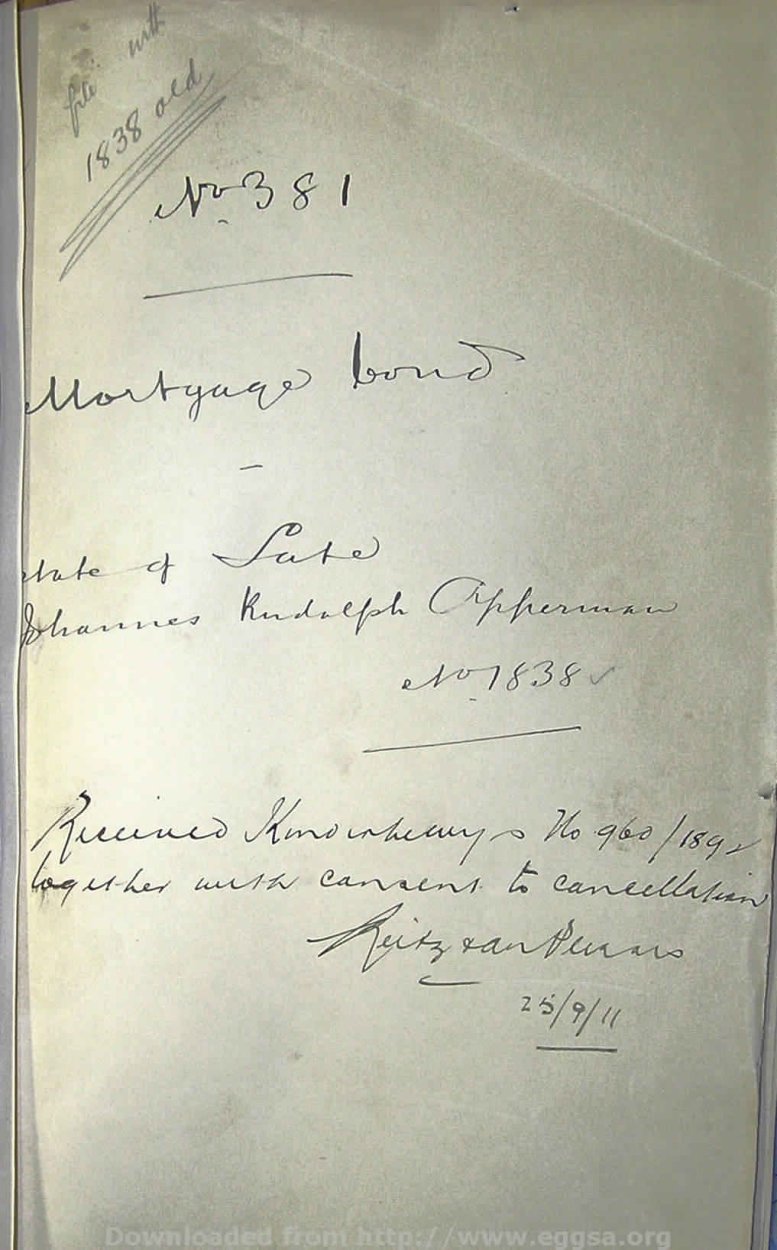 file with
1838 old
No 381
Mortgage bond
Estate of Late
Johannes Rudolph Opperman
No 1838 ✓
Received Kinderbewys No 960/1892
together with consent to cancellation
Reitz
25/9/11
Downloaded from http://www.eggsa.org